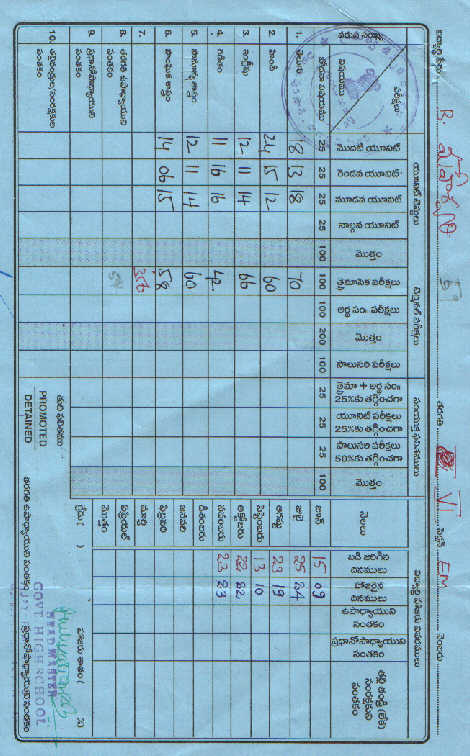 విద్యార్థి పేరు R. తరగతి VI సెక్షన్ EM నెంబరు
యూనిట్ పరీక్షలు
విద్యార్థి హాజరు వివరములు
వరుస సంఖ్య
పరీక్షలు
మొదటి యూనిట్
రెండవ యూనిట్
మూడవ యూనిట్
నాల్గవ యూనిట్
మొత్తం
త్రైమాసిక పరీక్షలు
అర్థ సం॥ పరీక్షలు
మొత్తం
సాలుసరి పరీక్షలు
త్రైమా + అర్థ సం॥ 25%కు తగ్గించగా
యూనిట్ పరీక్షలు 25%కు తగ్గించగా
సాలుసరి పరీక్షలు 50%కు తగ్గించగా
మొత్తం
నెలలు
బడి జరిగిన దినములు
హాజరైన దినములు
ఉపాధ్యాయుని సంతకం
ప్రధానోపాధ్యాయుని సంతకం
25 25 25 25 100 100 100 200 100 25 25 25 100
1. తెలుగు 18 13 18 70
2. హిందీ 24 15 12 60
3. ఇంగ్లీషు 12 11 14 66
4. గణితం 11 16 16 42
5. సామాన్య శాస్త్రం 12 11 14 60
6. సాంఘిక శాస్త్రం 14 06 15 58
7.
8. తరగతి ఉపాధ్యాయుని సంతకం
9. ప్రధానోపాధ్యాయుని సంతకం
10. తల్లిదండ్రులు/సంరక్షకుల సంతకం
జూన్ 15 09
జులై 25 24
ఆగష్టు 23 19
సెప్టెంబరు 13 10
అక్టోబరు 22
నవంబరు 23 23
డిశంబరు
జనవరి
ఫిబ్రవరి
మార్చి
ఏప్రియల్
మొత్తం
గ్రేడు ( )
హాజరు శాతం ( % )
తుది ఫలితము
PROMOTED
DETAINED
తరగతి ఉపాధ్యాయుని సంతకం
ప్రధానోపాధ్యాయుని సంతకం
HEAD MASTER
GOVT HIGH SCHOOL